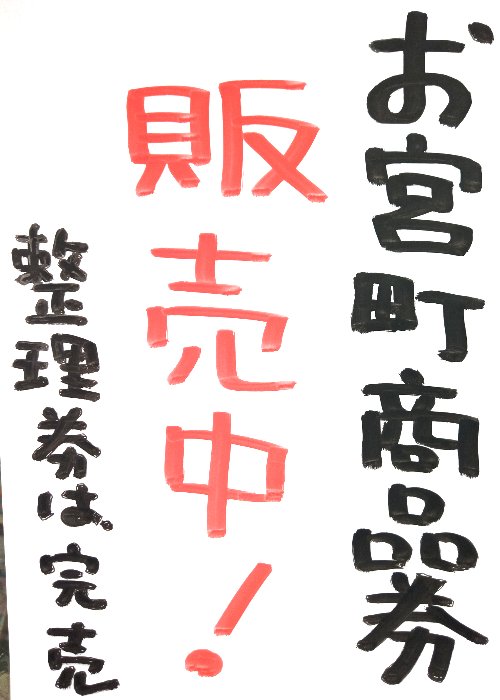 お宮町商品券
販売中!
整理券は、完売